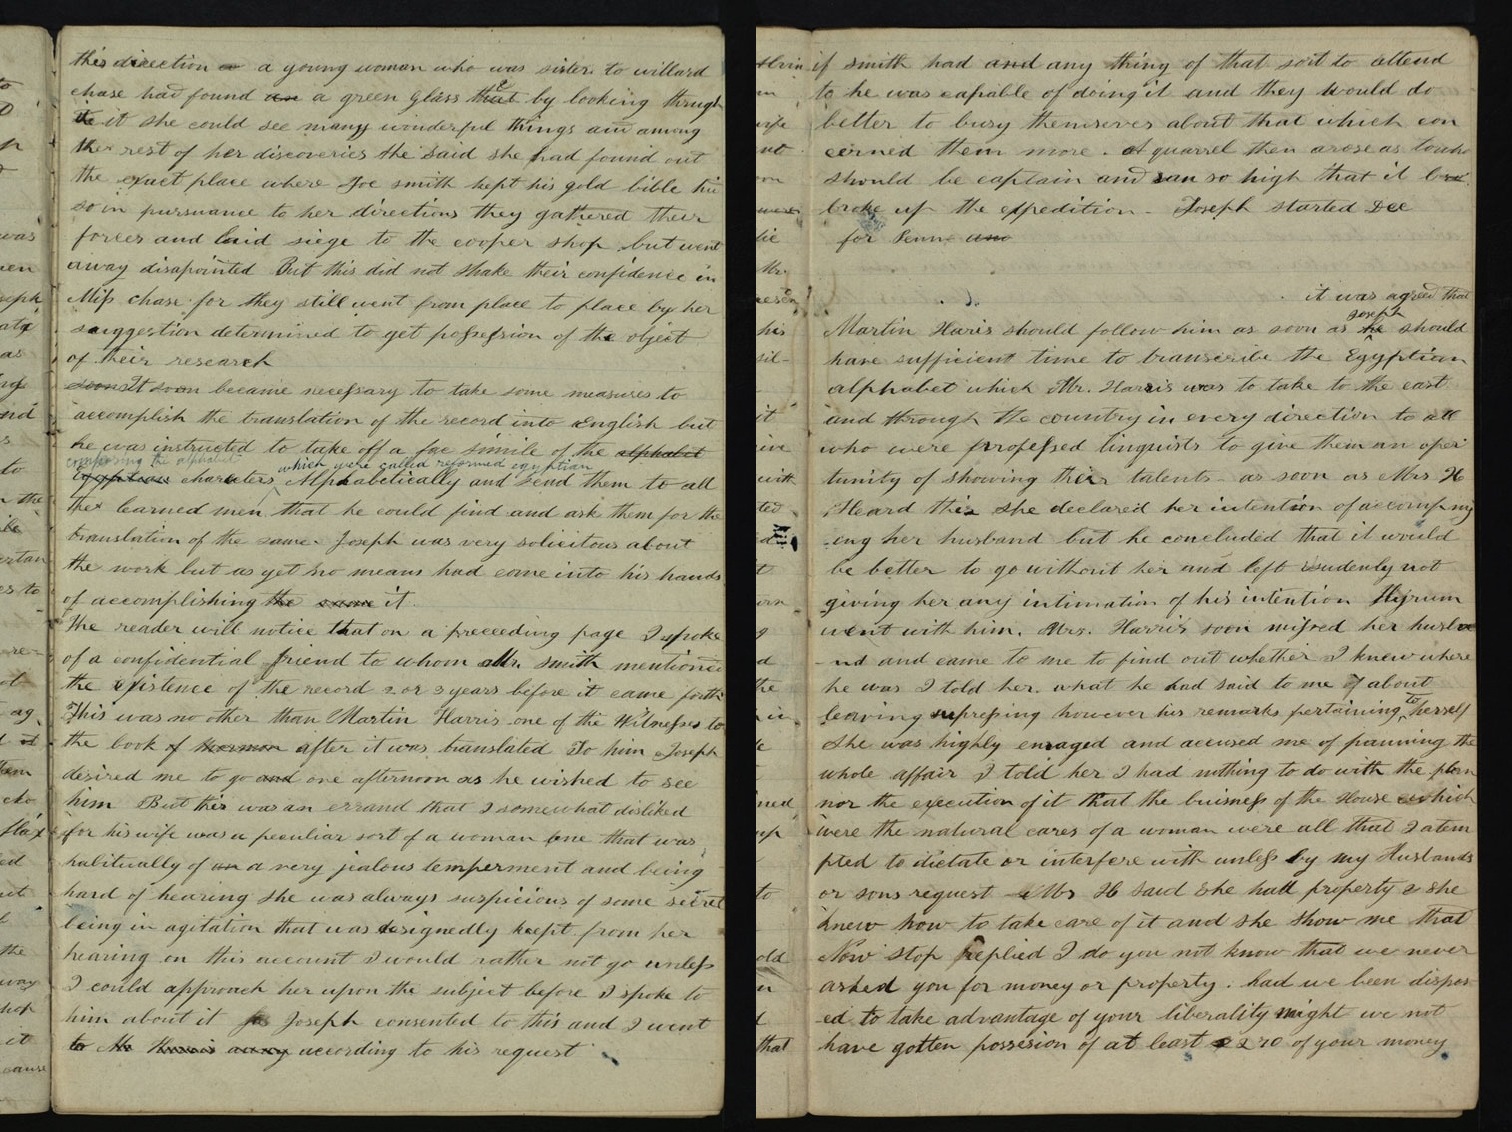 this direction a young woman who was sister to willard
chase had found an a green glass that by looking through
it she could see many wonderful things and among
the rest of her discoveries she said she had found out
the exact place where Joe smith kept his gold bible hid
so in pursuance to her directions they gathered their
forces and laid siege to the cooper shop but went
away disapointed But this did not shake their confidence in
Miss chase for they still went from place to place by her
suggestion determined to get possession of the object
of their research
soon It soon became necessary to take some measures to
accomplish the translation of the record into English but
he was instructed to take off a fac simile of the alphabet
composing the alphabet which were called reformed egyptian
egyptian characters Alphabetically and send them to all
the learned men that he could find and ask them for the
translation of the same. Joseph was very solicitous about
the work but as yet no means had come into his hands
of accomplishing the same it.
The reader will notice that on a preceeding page I spoke
of a confidential friend to whom Mr. smith mentioned
the existence of the record 2 or 3 years before it came forth
This was no other than Martin Harris one of the Witnesses to
the book of mormon after it was translated To him Joseph
desired me to go and one afternoon as he wished to see
him But this was an errand that I somewhat disliked
for his wife was a peculiar sort of a woman one that was
habitually of an a very jealous temperment and being
hard of hearing she was always suspicious of some secret
being in agitation that was designedly keept from her
hearing on this account I would rather not go unless
I could approach her upon the subject before I spoke to
him about it Joseph consented to this and I went
to Mr Harris away according to his request
if smith had and any thing of that sort to attend
to he was capable of doing it and they would do
better to busy themseves about that which con
cerned them more. A quarrel then arose as to who
should be captain and ran so high that it
broke up the expedition - Joseph started Dec
for Penn. and
it was agreed that
joseph
Martin Haris should follow him as soon as he should
have sufficient time to transcribe the Egyptian
alphabet which Mr. Harris was to take to the east
and through the country in every direction to all
who were professed linguists to give them an oper
tunity of showing their talents - as soon as Mrs H
Heard this she declared her intention of accompany
eng her husband but he concluded that it would
be better to go without her and left sudenly not
giving her any intimation of his intention Hyrum
went with him. Mrs. Harris soon missed her husba
-nd and came to me to find out whether I knew where
he was I told her what he had said to me of about
to
leaving supressing however his remarks pertaining herself
She was highly enraged and accused me of planning the
whole affair I told her I had nothing to do with the plan
nor the execution of it that the buisness of the House which
were the natural cares of a woman were all that I atem
pted to dictate or interfere with unless by my Husbands
or sons request - Mrs H said she had property & she
knew how to take care of it and she show me that
Now stop replied I do you not know that we never
asked you for money or property. had we been dispos
ed to take advantage of your liberality might we not
have gotten possesion of at least 270 of your money